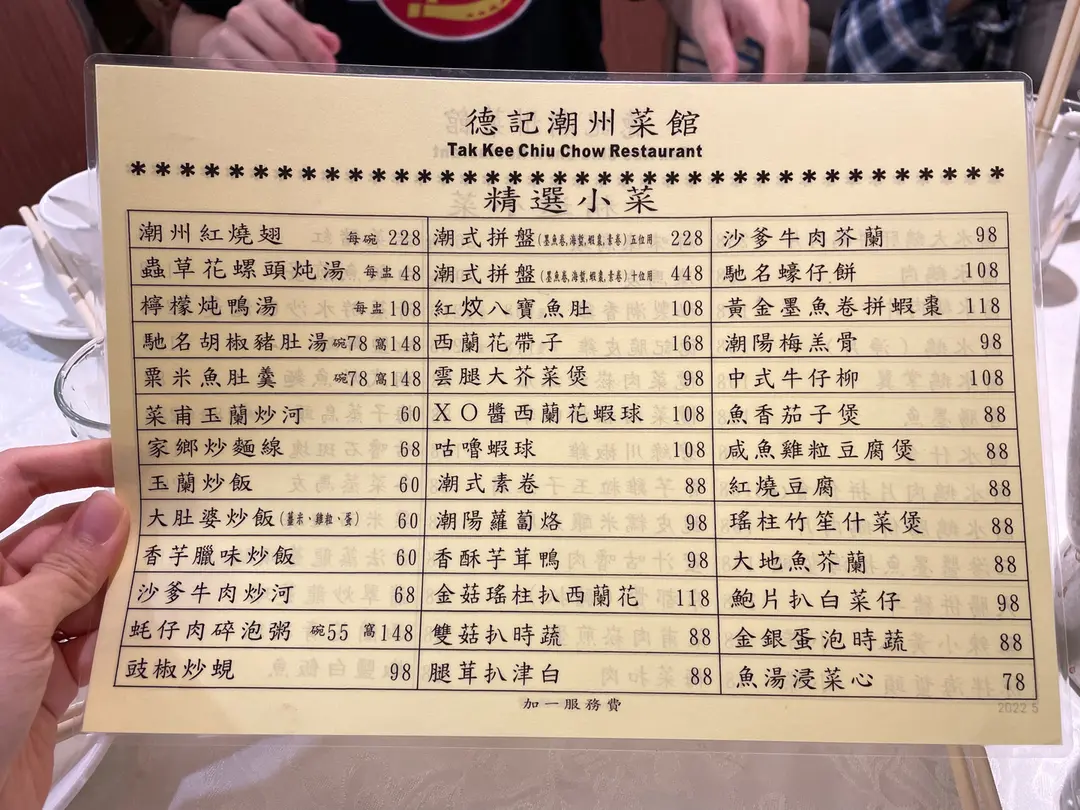 德記潮州菜館
Tak Kee Chiu Chow Restaurant
*************************************
精選小菜
潮州紅燒翅 每碗 228
蟲草花螺頭炖湯 每盅 48
檸檬炖鴨湯 每盅 108
馳名胡椒豬肚湯 碗78 窩148
粟米魚肚羹 碗78 窩148
菜甫玉蘭炒河 60
家鄉炒麵線 68
玉蘭炒飯 60
大肚婆炒飯(薑米、雞粒、蛋) 60
香芋臘味炒飯 60
沙爹牛肉炒河 68
蚝仔肉碎泡粥 碗55 窩148
豉椒炒蜆 98
潮式拼盤(墨魚卷,海蜇,蝦棗,素卷)五位用 228
潮式拼盤(墨魚卷,海蜇,蝦棗,素卷)十位用 448
紅炆八寶魚肚 108
西蘭花帶子 168
雲腿大芥菜煲 98
XO醬西蘭花蝦球 108
咕嚕蝦球 108
潮式素卷 88
潮陽蘿蔔烙 98
香酥芋茸鴨 98
金菇瑤柱扒西蘭花 118
雙菇扒時蔬 88
腿茸扒津白 88
沙爹牛肉芥蘭 98
馳名蠔仔餅 108
黃金墨魚卷拼蝦棗 118
潮陽梅羔骨 98
中式牛仔柳 108
魚香茄子煲 88
咸魚雞粒豆腐煲 88
紅燒豆腐 88
瑤柱竹笙什菜煲 88
大地魚芥蘭 88
鮑片扒白菜仔 98
金銀蛋泡時蔬 88
魚湯浸菜心 78
加一服務費
2022 5